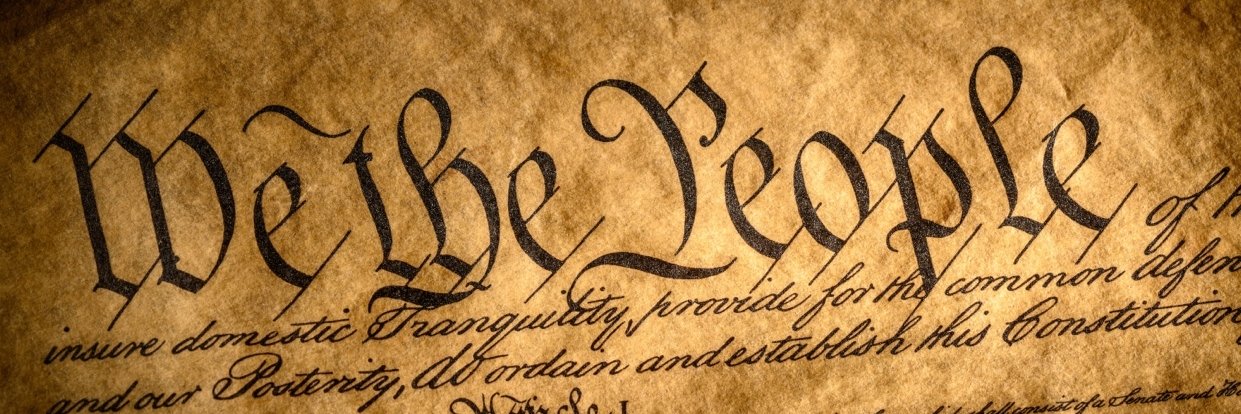 We the People of
insure domestic Tranquility, provide for the common defen
and our Posterity, do ordain and establish this Constitution
shall consist of a Senate and